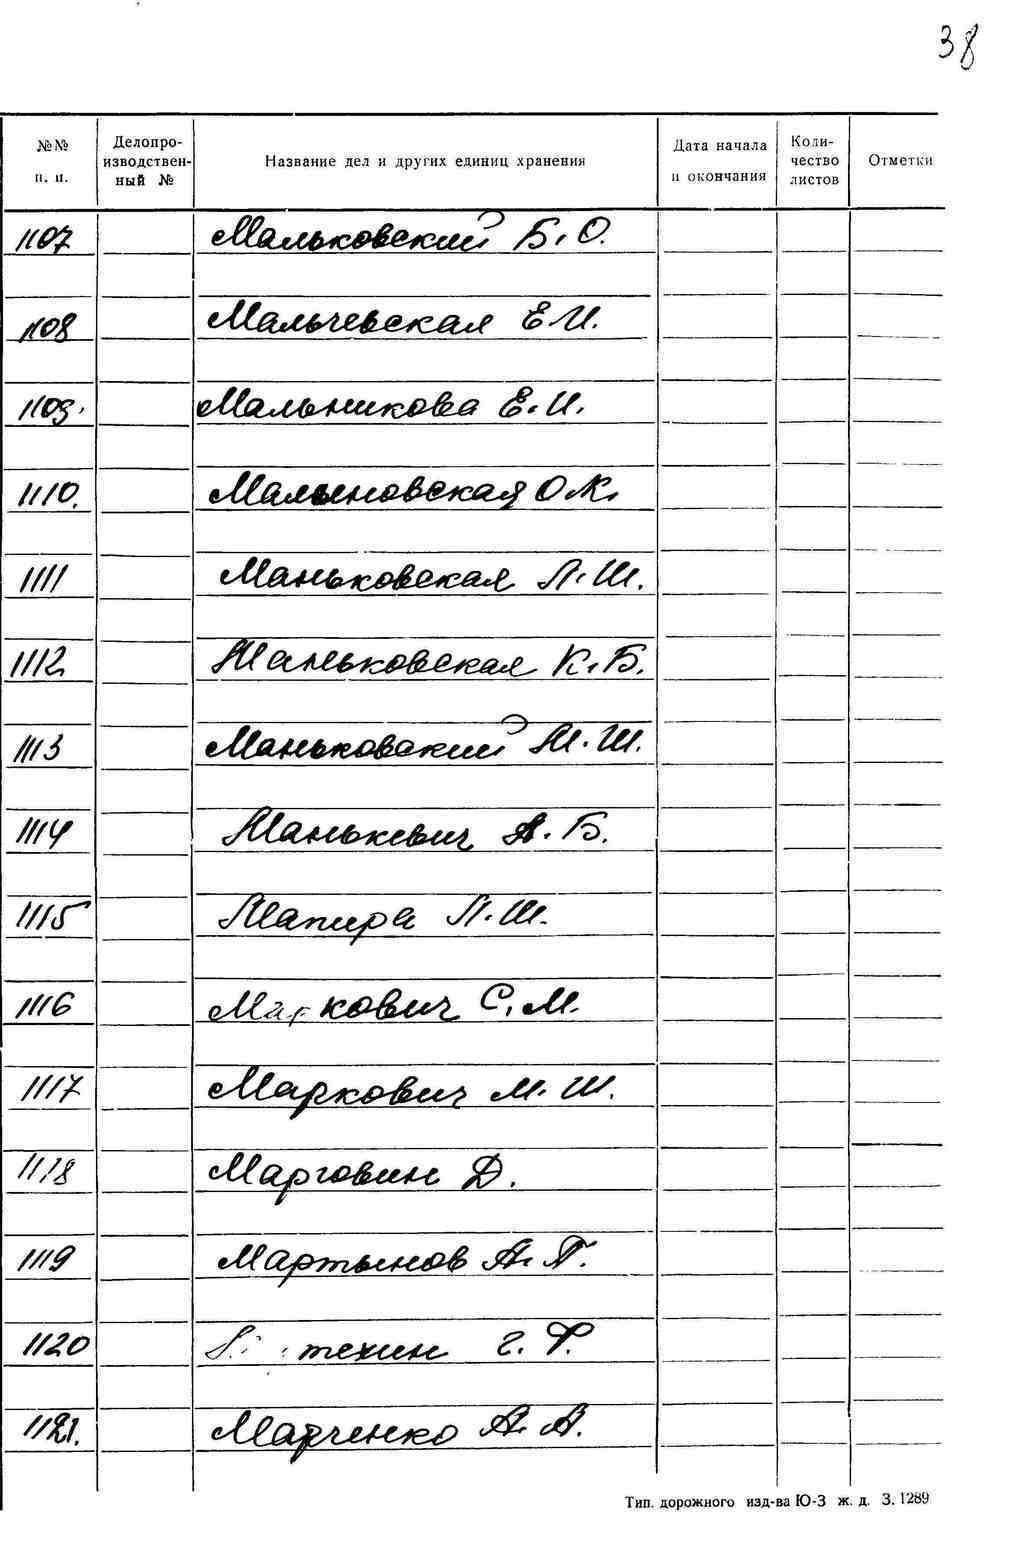 38
№№ п. п. Делопро-изводствен-ный № Название дел и других единиц хранения Дата начала и окончания Коли-чество листов Отметки
1107 Мальковский Б. О.
1108 Мальчевская Е. И.
1109. Мальникова Е. И.
1110. Малиновская О. К.
1111 Маньковская Л. Ш.
1112 Маньковская К. Б.
1113 Маньковский М. Ш.
1114 Манькевич А. Б.
1115 Мапира Л. Ш.
1116 Маркович С. М.
1117 Маркович М. Ш.
1118 Марговин Д.
1119 Мартынов А. П.
1120 Г. Ф.
1121. Марченко А. А.
Тип. дорожного изд-ва Ю-З ж. д. З. 1289